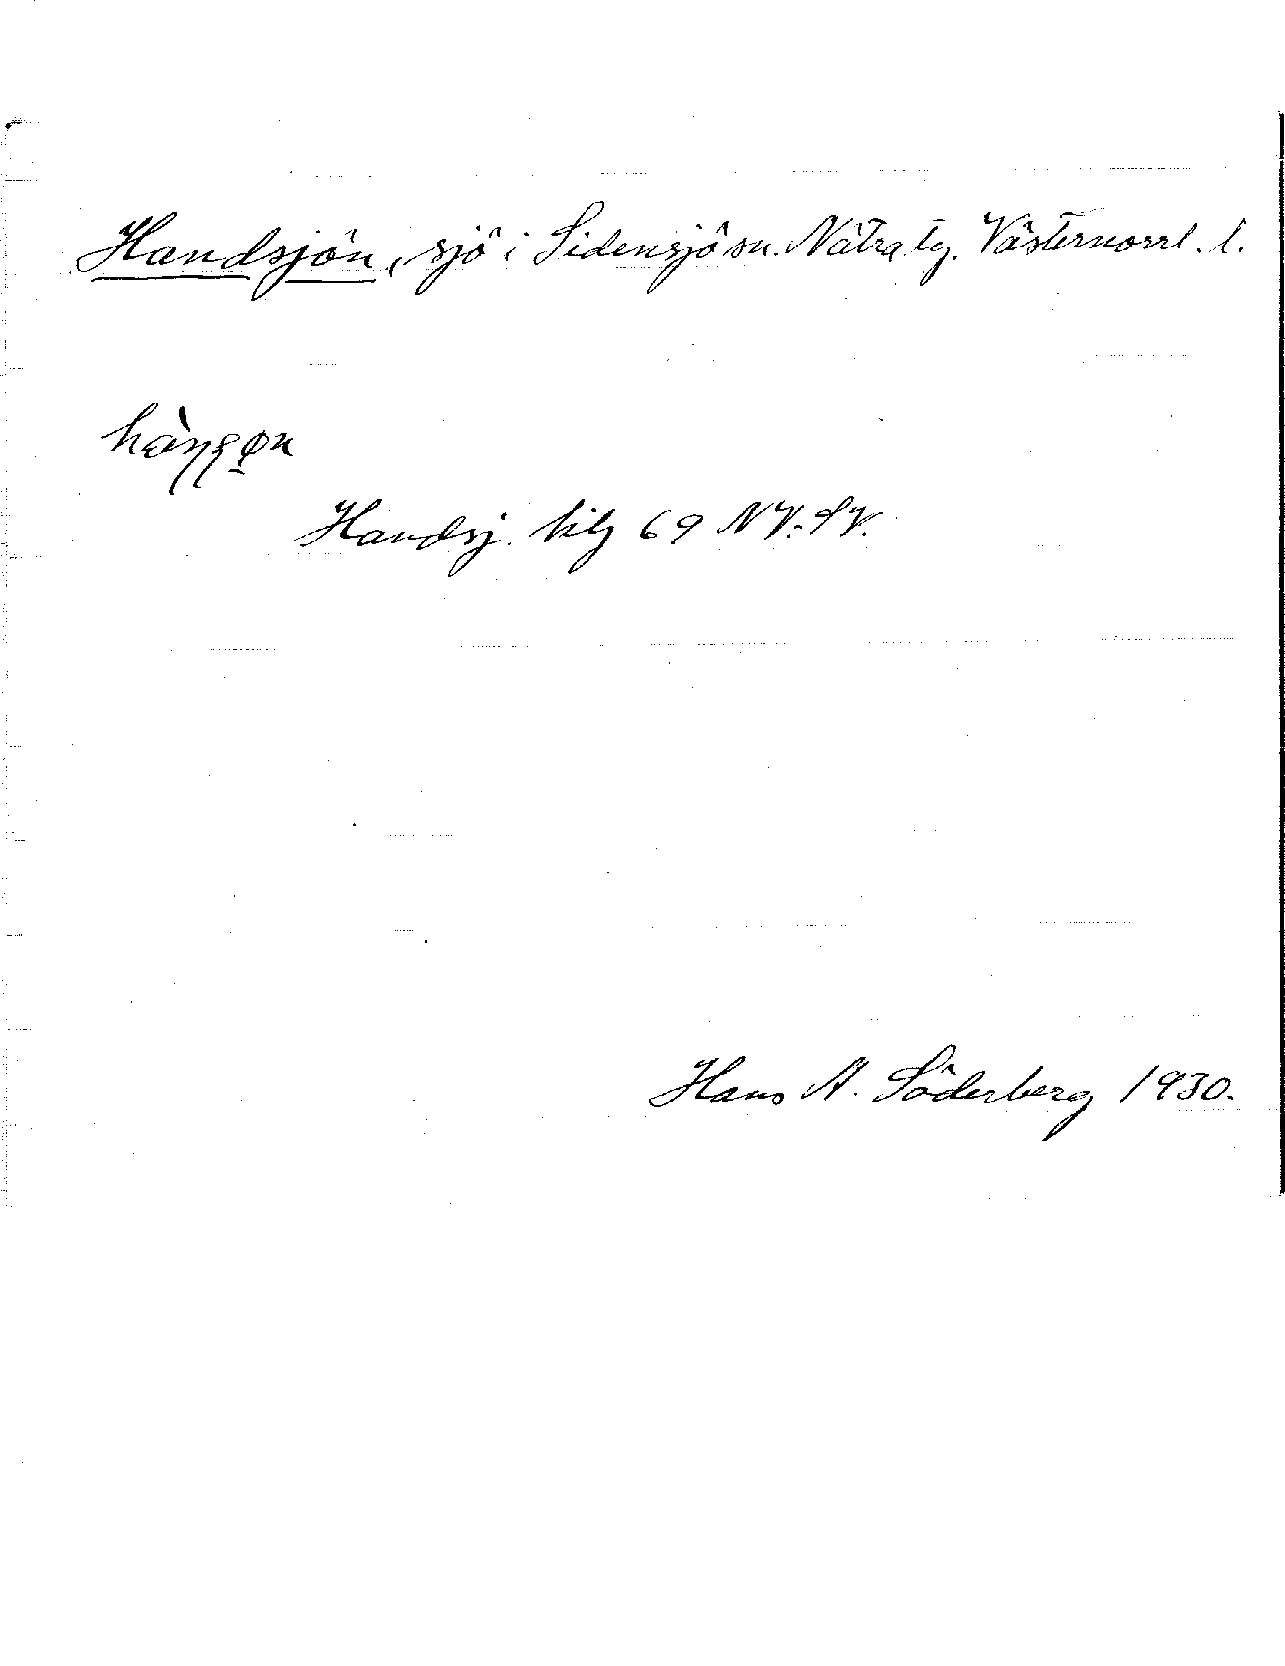 Handsjön, sjö i Sidensjö sn. Nätra tg. Västernorrl. l.
Handsj. bilj 69 NV:SV.
Hans A. Söderberg 1930.